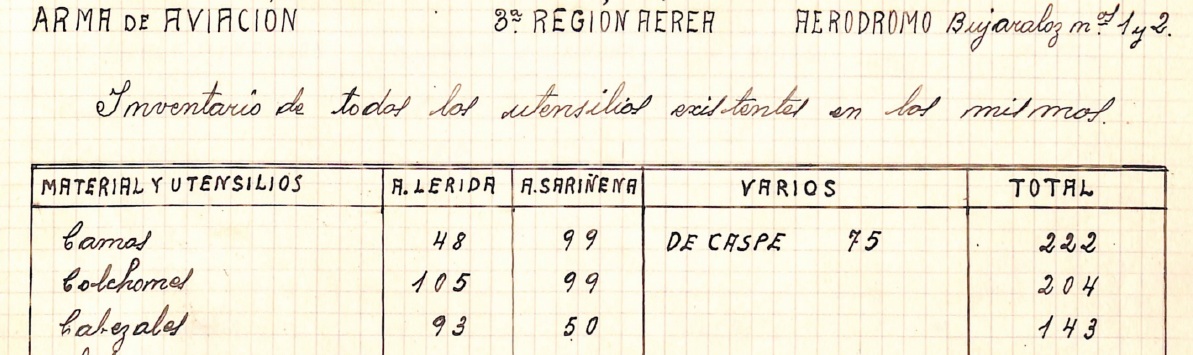 ARMA DE AVIACIÓN 3ª REGIÓN AEREA AERODROMO Bujaraloz nos 1 y 2.
Inventario de todos los utensilios existentes en los mismos.
MATERIAL Y UTENSILIOS A. LERIDA A. SARIÑENA VARIOS TOTAL
Camas 48 99 DE CASPE 75 222
Colchones 105 99 204
Cabezales 93 50 143